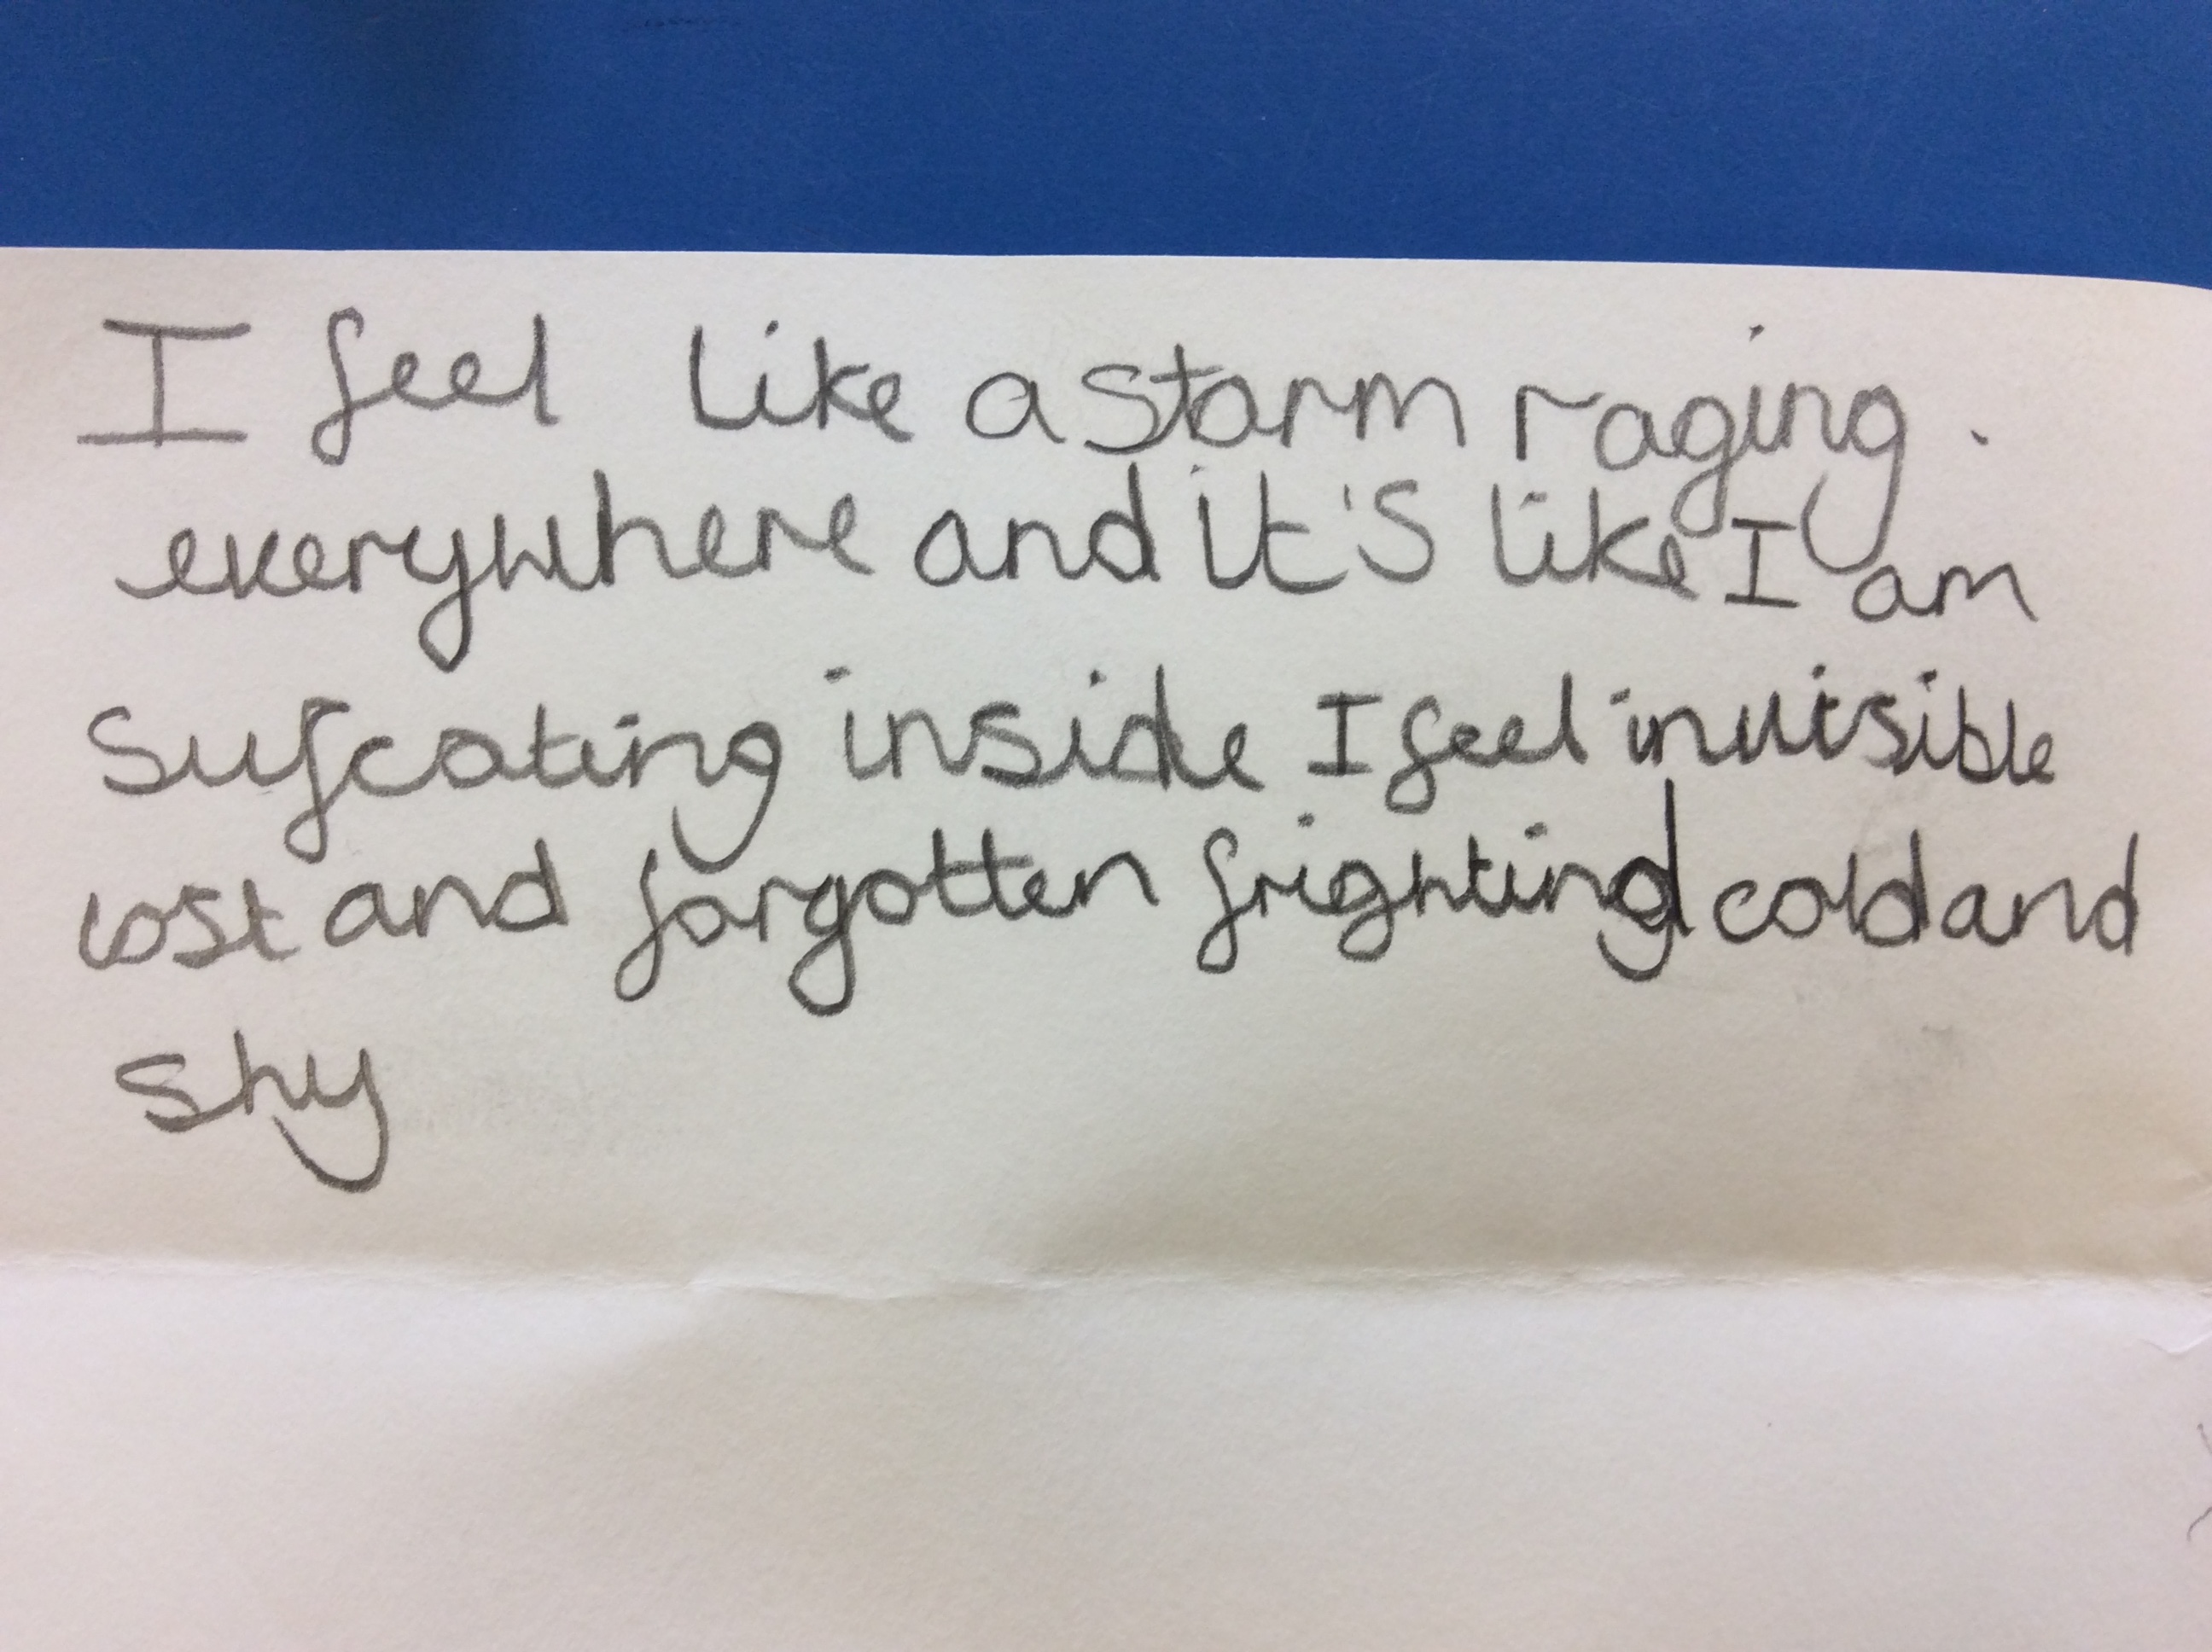 I feel like a storm raging.
everywhere and it's like I am
sufcating inside I feel invisible
lost and forgotten cold and
shy